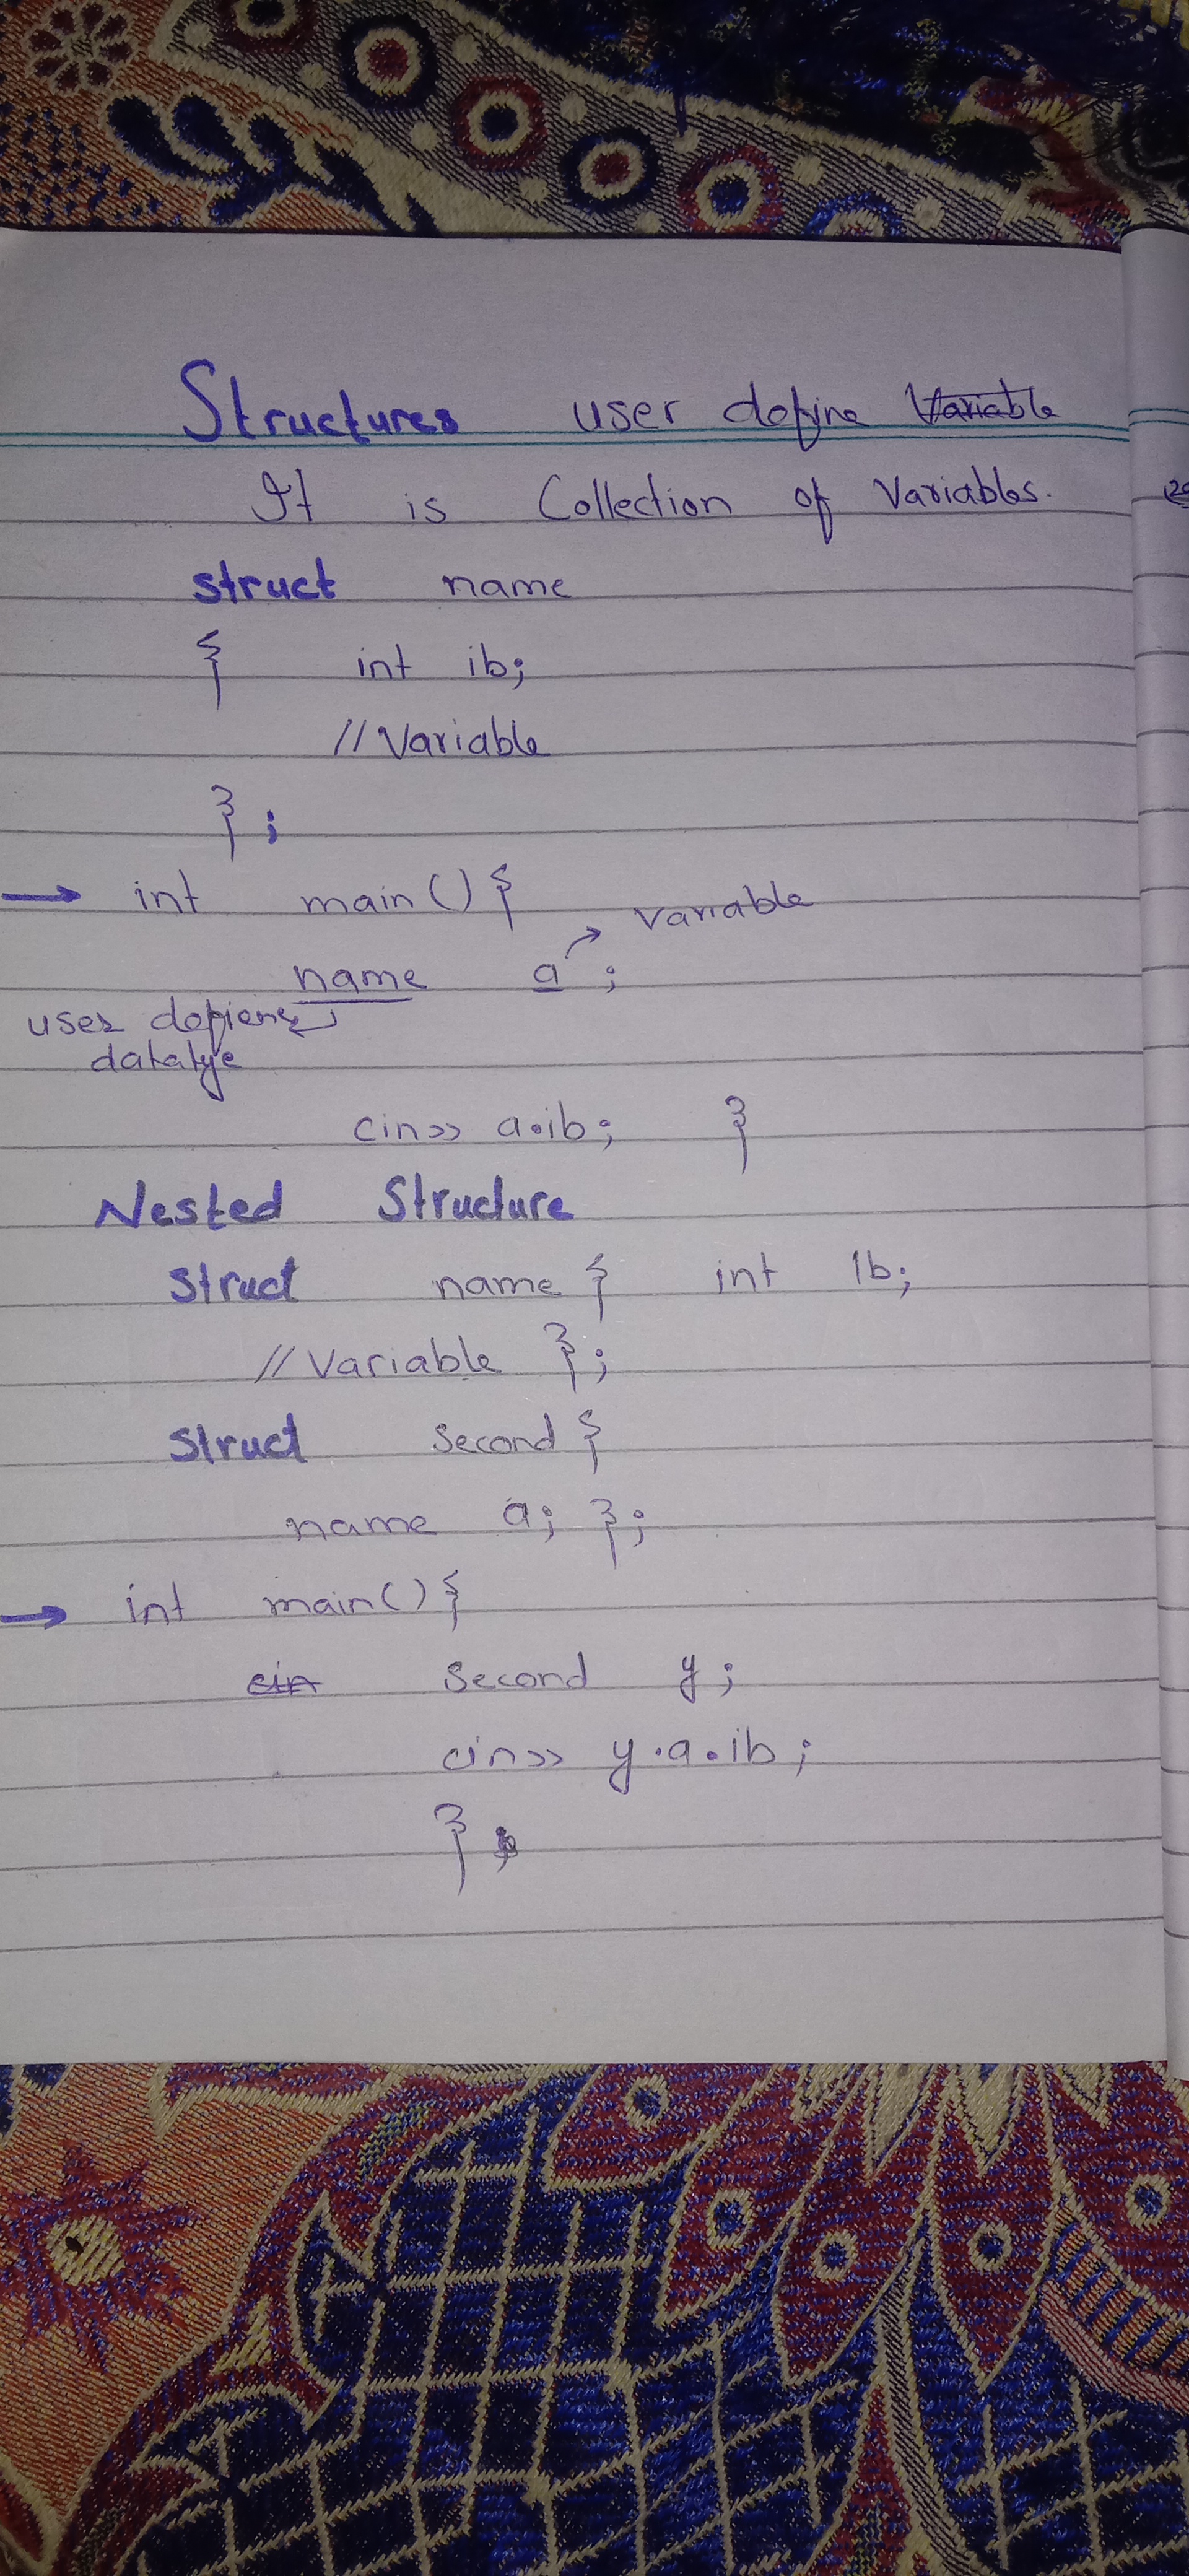 Structures user define Variable
It is Collection of Variables.
struct name
{ int ib;
// Variable
} ;
int main() {
variable
name a ;
user defiene
datatye
cin>> a.ib; }
Nested Structure
Struct name { int Ib;
// Variable };
Struct Second {
name a; };
int main() {
cin Second y;
cin>> y.a.ib;
}